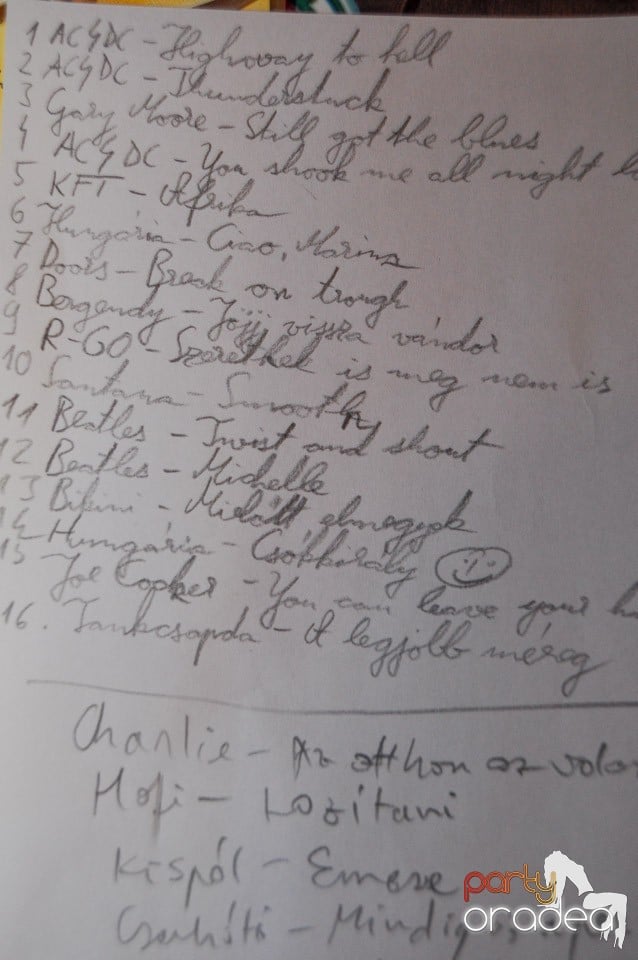 1 AC⚡DC - Highway to hell
2 AC⚡DC - Thunderstuck
3 Gary Moore - Still got the blues
4 AC⚡DC - You shook me all night lo
5 KFT - Afrika
6 Hungária - Ciao, Marina
7 Doors - Break on trough
8 Bergendy - Jöjj vissza vándor
9 R-GO - Szeretlek is meg nem is
10 Santana - Smooth
11 Beatles - Twist and shout
12 Beatles - Michelle
13 Bikini - Mielőtt elmegyek
14 Hungária - Csókkirály
15 Joe Cocker - You can leave your h
16. Tankcsapda - A legjobb méreg
Charlie - Az otthon az vola
Hofi - Lazítani
Kispál - Emese
Mindig
party
oradea